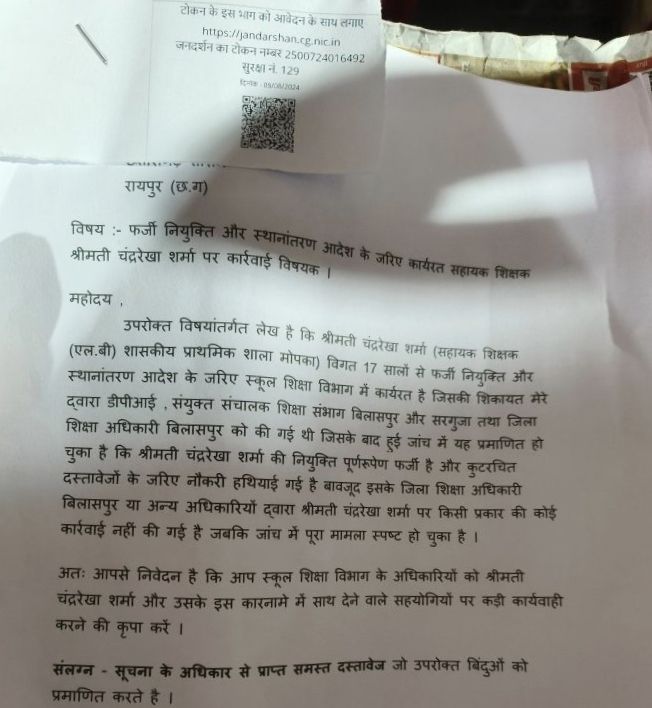 टोकन के इस भाग को आवेदन के साथ लगाए
https://jandarshan.cg.nic.in
जनदर्शन का टोकन नम्बर 2500724016492
सुरक्षा नं. 129
दिनांक - 09/08/2024
रायपुर (छ.ग)
विषय :- फर्जी नियुक्ति और स्थानांतरण आदेश के जरिए कार्यरत सहायक शिक्षक
श्रीमती चंद्ररेखा शर्मा पर कार्रवाई विषयक |
महोदय ,
उपरोक्त विषयांतर्गत लेख है कि श्रीमती चंद्ररेखा शर्मा (सहायक शिक्षक
(एल.बी) शासकीय प्राथमिक शाला मोपका) विगत 17 सालों से फर्जी नियुक्ति और
स्थानांतरण आदेश के जरिए स्कूल शिक्षा विभाग में कार्यरत है जिसकी शिकायत मेरे
द्वारा डीपीआई , संयुक्त संचालक शिक्षा संभाग बिलासपुर और सरगुजा तथा जिला
शिक्षा अधिकारी बिलासपुर को की गई थी जिसके बाद हुई जांच में यह प्रमाणित हो
चुका है कि श्रीमती चंद्ररेखा शर्मा की नियुक्ति पूर्णरूपेण फर्जी है और कुटरचित
दस्तावेजों के जरिए नौकरी हथियाई गई है बावजूद इसके जिला शिक्षा अधिकारी
बिलासपुर या अन्य अधिकारियों द्वारा श्रीमती चंद्ररेखा शर्मा पर किसी प्रकार की कोई
कार्रवाई नहीं की गई है जबकि जांच में पूरा मामला स्पष्ट हो चुका है |
अतः आपसे निवेदन है कि आप स्कूल शिक्षा विभाग के अधिकारियों को श्रीमती
चंद्ररेखा शर्मा और उसके इस कारनामे में साथ देने वाले सहयोगियों पर कड़ी कार्यवाही
करने की कृपा करें |
संलग्न - सूचना के अधिकार से प्राप्त समस्त दस्तावेज जो उपरोक्त बिंदुओं को
प्रमाणित करते है |